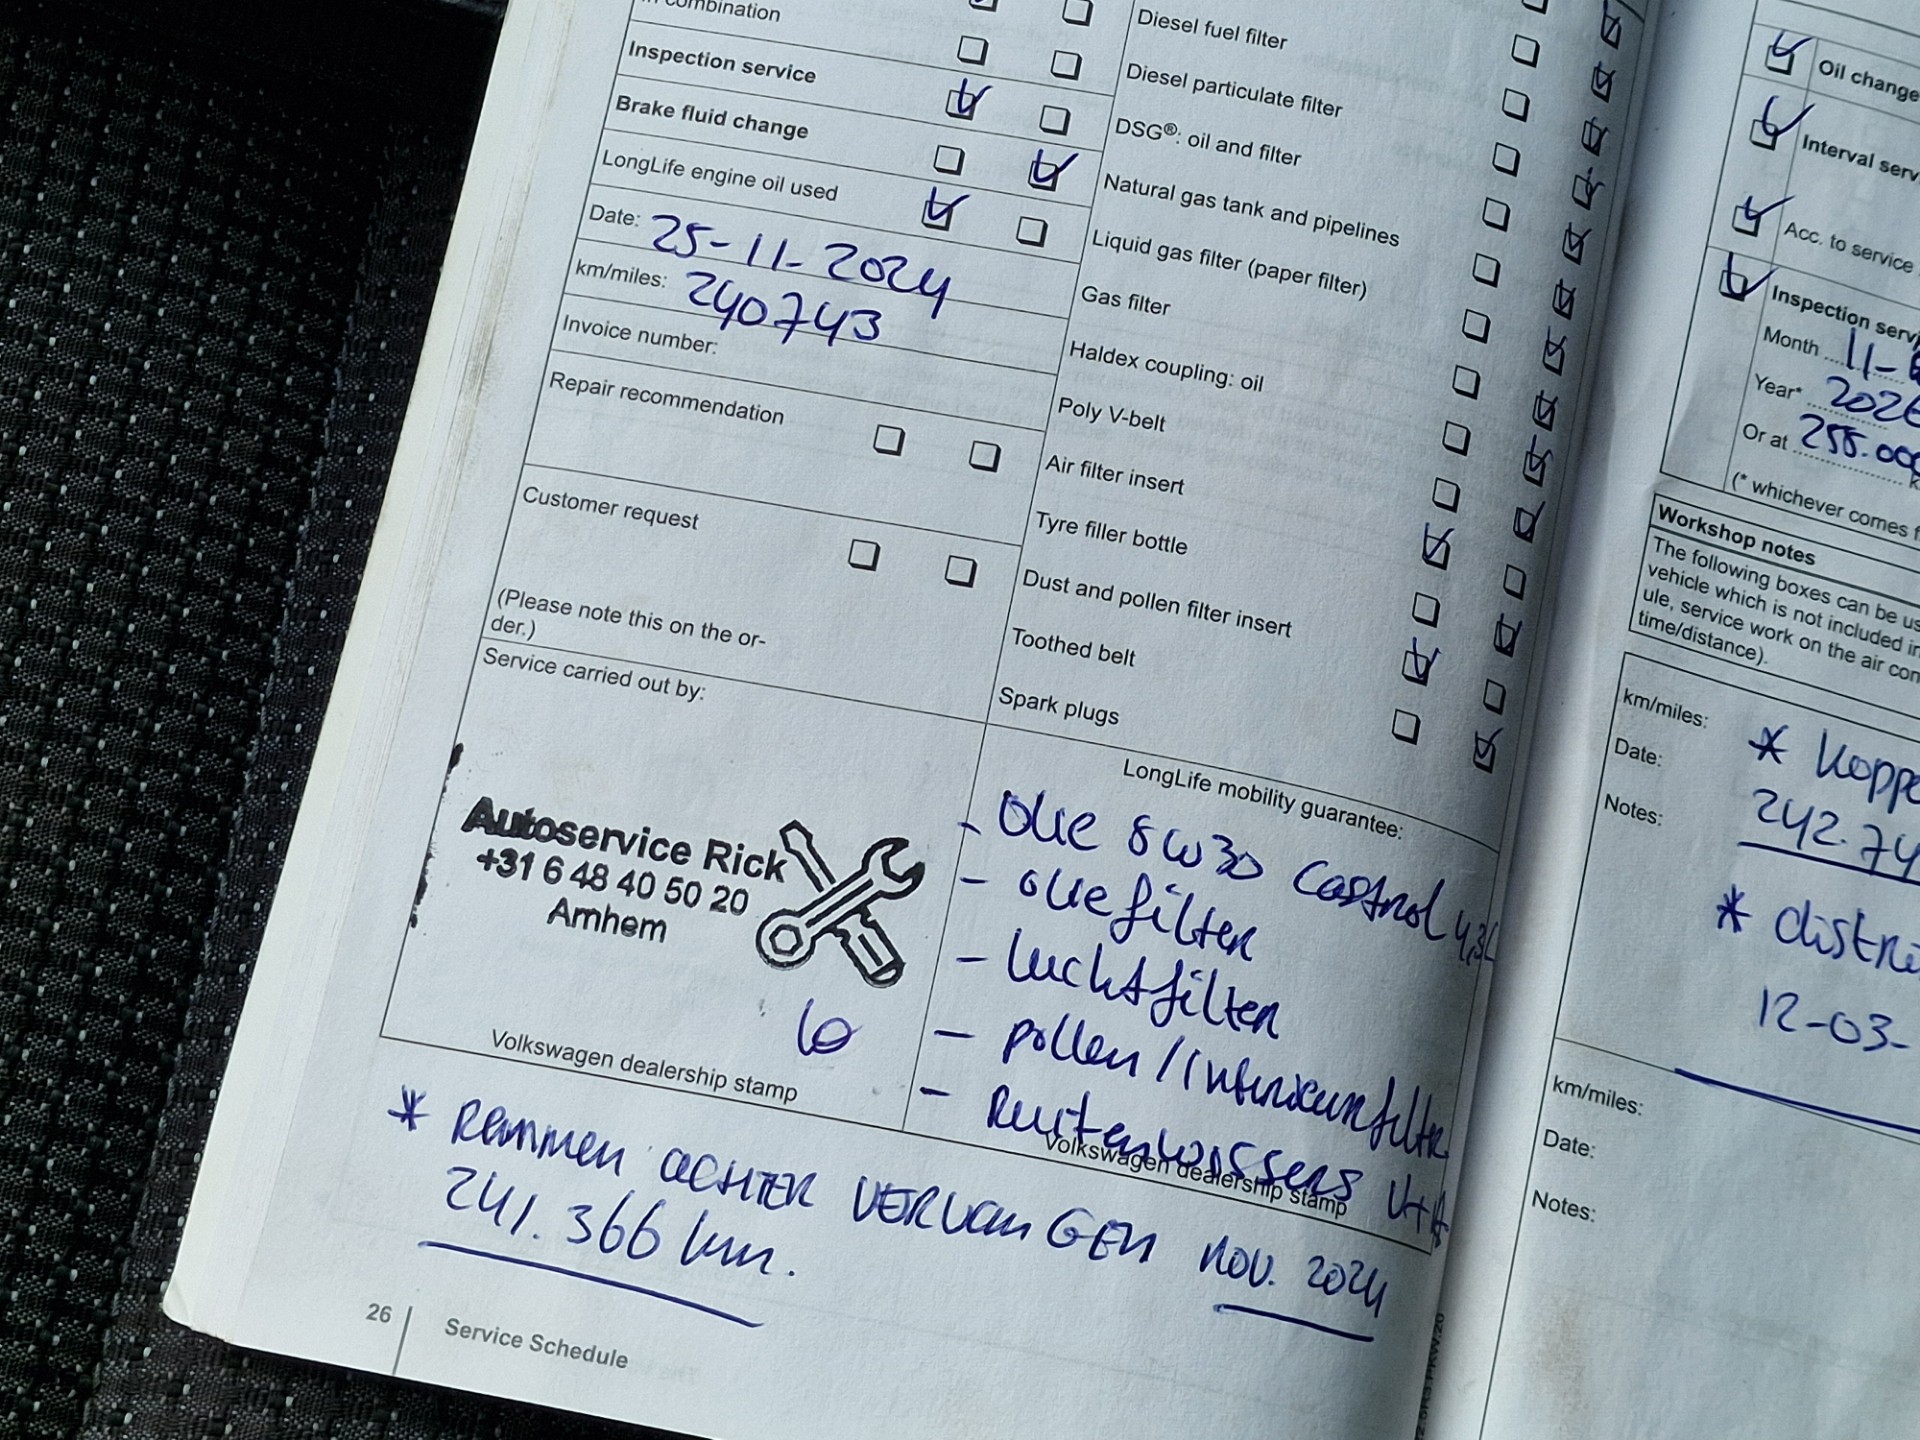 combination
Inspection service
Brake fluid change
LongLife engine oil used
Date: 25-11-2024
km/miles: 240743
Invoice number:
Repair recommendation
Customer request
(Please note this on the or-
der.)
Service carried out by:
Autoservice Rick
+31 6 48 40 50 20
Arnhem
Volkswagen dealership stamp
Diesel fuel filter
Diesel particulate filter
DSG®: oil and filter
Natural gas tank and pipelines
Liquid gas filter (paper filter)
Gas filter
Haldex coupling: oil
Poly V-belt
Air filter insert
Tyre filler bottle
Dust and pollen filter insert
Toothed belt
Spark plugs
LongLife mobility guarantee:
- Olie 5W30 Castrol 4,3L
- oliefilter
- luchtfilter
- pollen/interieurfilter
- Ruitenwissers V+A
Volkswagen dealership stamp
* Remmen ACHTER VERVANGEN nov. 2024
241.366 km.
26
Service Schedule
Oil change
Interval serv
Acc. to service
Inspection serv
Month 11-
Year* 2026
Or at 255.000
(* whichever comes f
Workshop notes
The following boxes can be us
vehicle which is not included in
ule, service work on the air con
time/distance).
km/miles:
* Koppe
Date:
242.74
Notes:
* distri
12-03-
km/miles:
Date:
Notes: